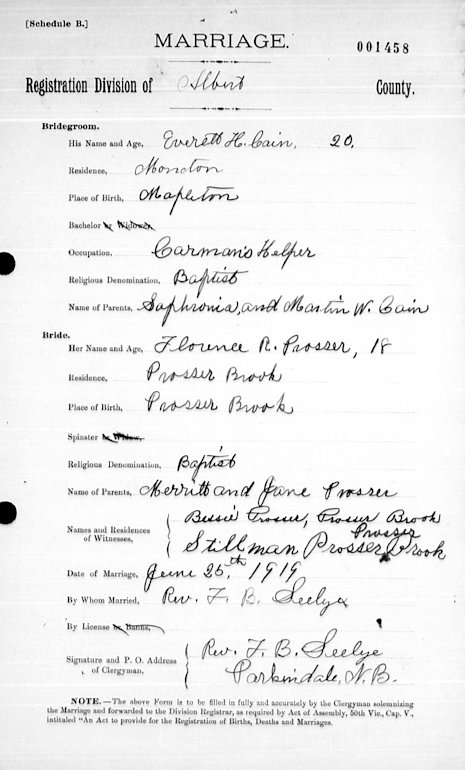 [Schedule B.]
MARRIAGE.
001458
Registration Division of Albert County.
Bridegroom.
His Name and Age, Everett H. Cain, 20,
Residence, Moncton
Place of Birth, Mapleton
Bachelor or Widower,
Occupation, Carman's Helper
Religious Denomination, Baptist
Name of Parents, Sophronia, and Martin W. Cain
Bride.
Her Name and Age, Florence R. Prosser, 18
Residence, Prosser Brook
Place of Birth, Prosser Brook
Spinster or Widow,
Religious Denomination, Baptist
Name of Parents, Merritt and Jane Prosser
Names and Residences of Witnesses, Bessie Prosser, Prosser Brook
Stillman Prosser, Prosser Brook
Date of Marriage, June 25th, 1919
By Whom Married, Rev. F. B. Seelye
By License or Banns,
Signature and P. O. Address of Clergyman, Rev. F. B. Seelye
Parkindale, N.B.
NOTE.—The above Form is to be filled in fully and accurately by the Clergyman solemnizing
the Marriage and forwarded to the Division Registrar, as required by Act of Assembly, 50th Vic., Cap. V.,
intituled "An Act to provide for the Registration of Births, Deaths and Marriages.